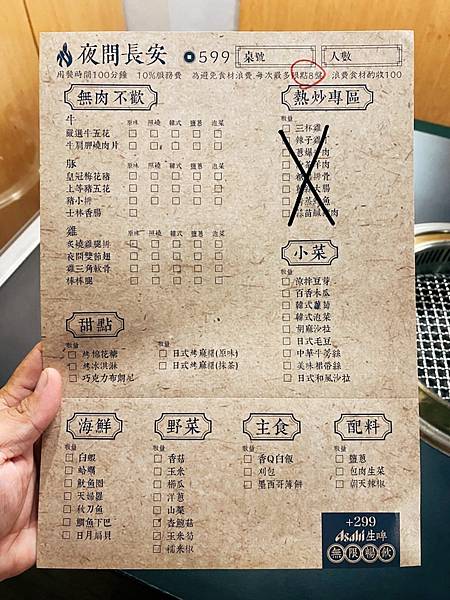 夜間長安 599 桌號 人數
用餐時間100分鐘 10%服務費 為避免食材浪費,每次最多限點8盤 浪費食材酌收100
無肉不歡
牛 原味 照燒 韓式 鹽蔥 泡菜
嚴選牛五花
牛肩胛燒肉片
豚 原味 照燒 韓式 鹽蔥 泡菜
皇冠梅花豬
上等豬五花
豬小排
士林香腸
雞 原味 照燒 韓式 鹽蔥 泡菜
炙燒雞腿排
夜問雙節翅
雞三角軟骨
棒棒腿
熱炒專區
數量
三杯雞
辣子雞
蔥爆
小菜
數量
涼拌豆芽
百香木瓜
韓式蘿蔔
韓式泡菜
胡麻沙拉
日式毛豆
中華牛蒡絲
美味裙帶絲
日式和風沙拉
甜點
數量 數量
烤棉花糖 日式烤麻糬(原味)
烤冰淇淋 日式烤麻糬(抹茶)
巧克力布朗尼
海鮮
數量
白蝦
蛤蠣
魷魚圈
天婦羅
秋刀魚
鯛魚下巴
日月扇貝
野菜
數量
香菇
玉米
櫛瓜
洋蔥
山藥
杏鮑菇
玉米筍
糯米椒
主食
數量
香Q白飯
刈包
墨西哥薄餅
配料
數量
鹽蔥
包肉生菜
朝天辣椒
+299
Asahi 生啤
無限暢飲